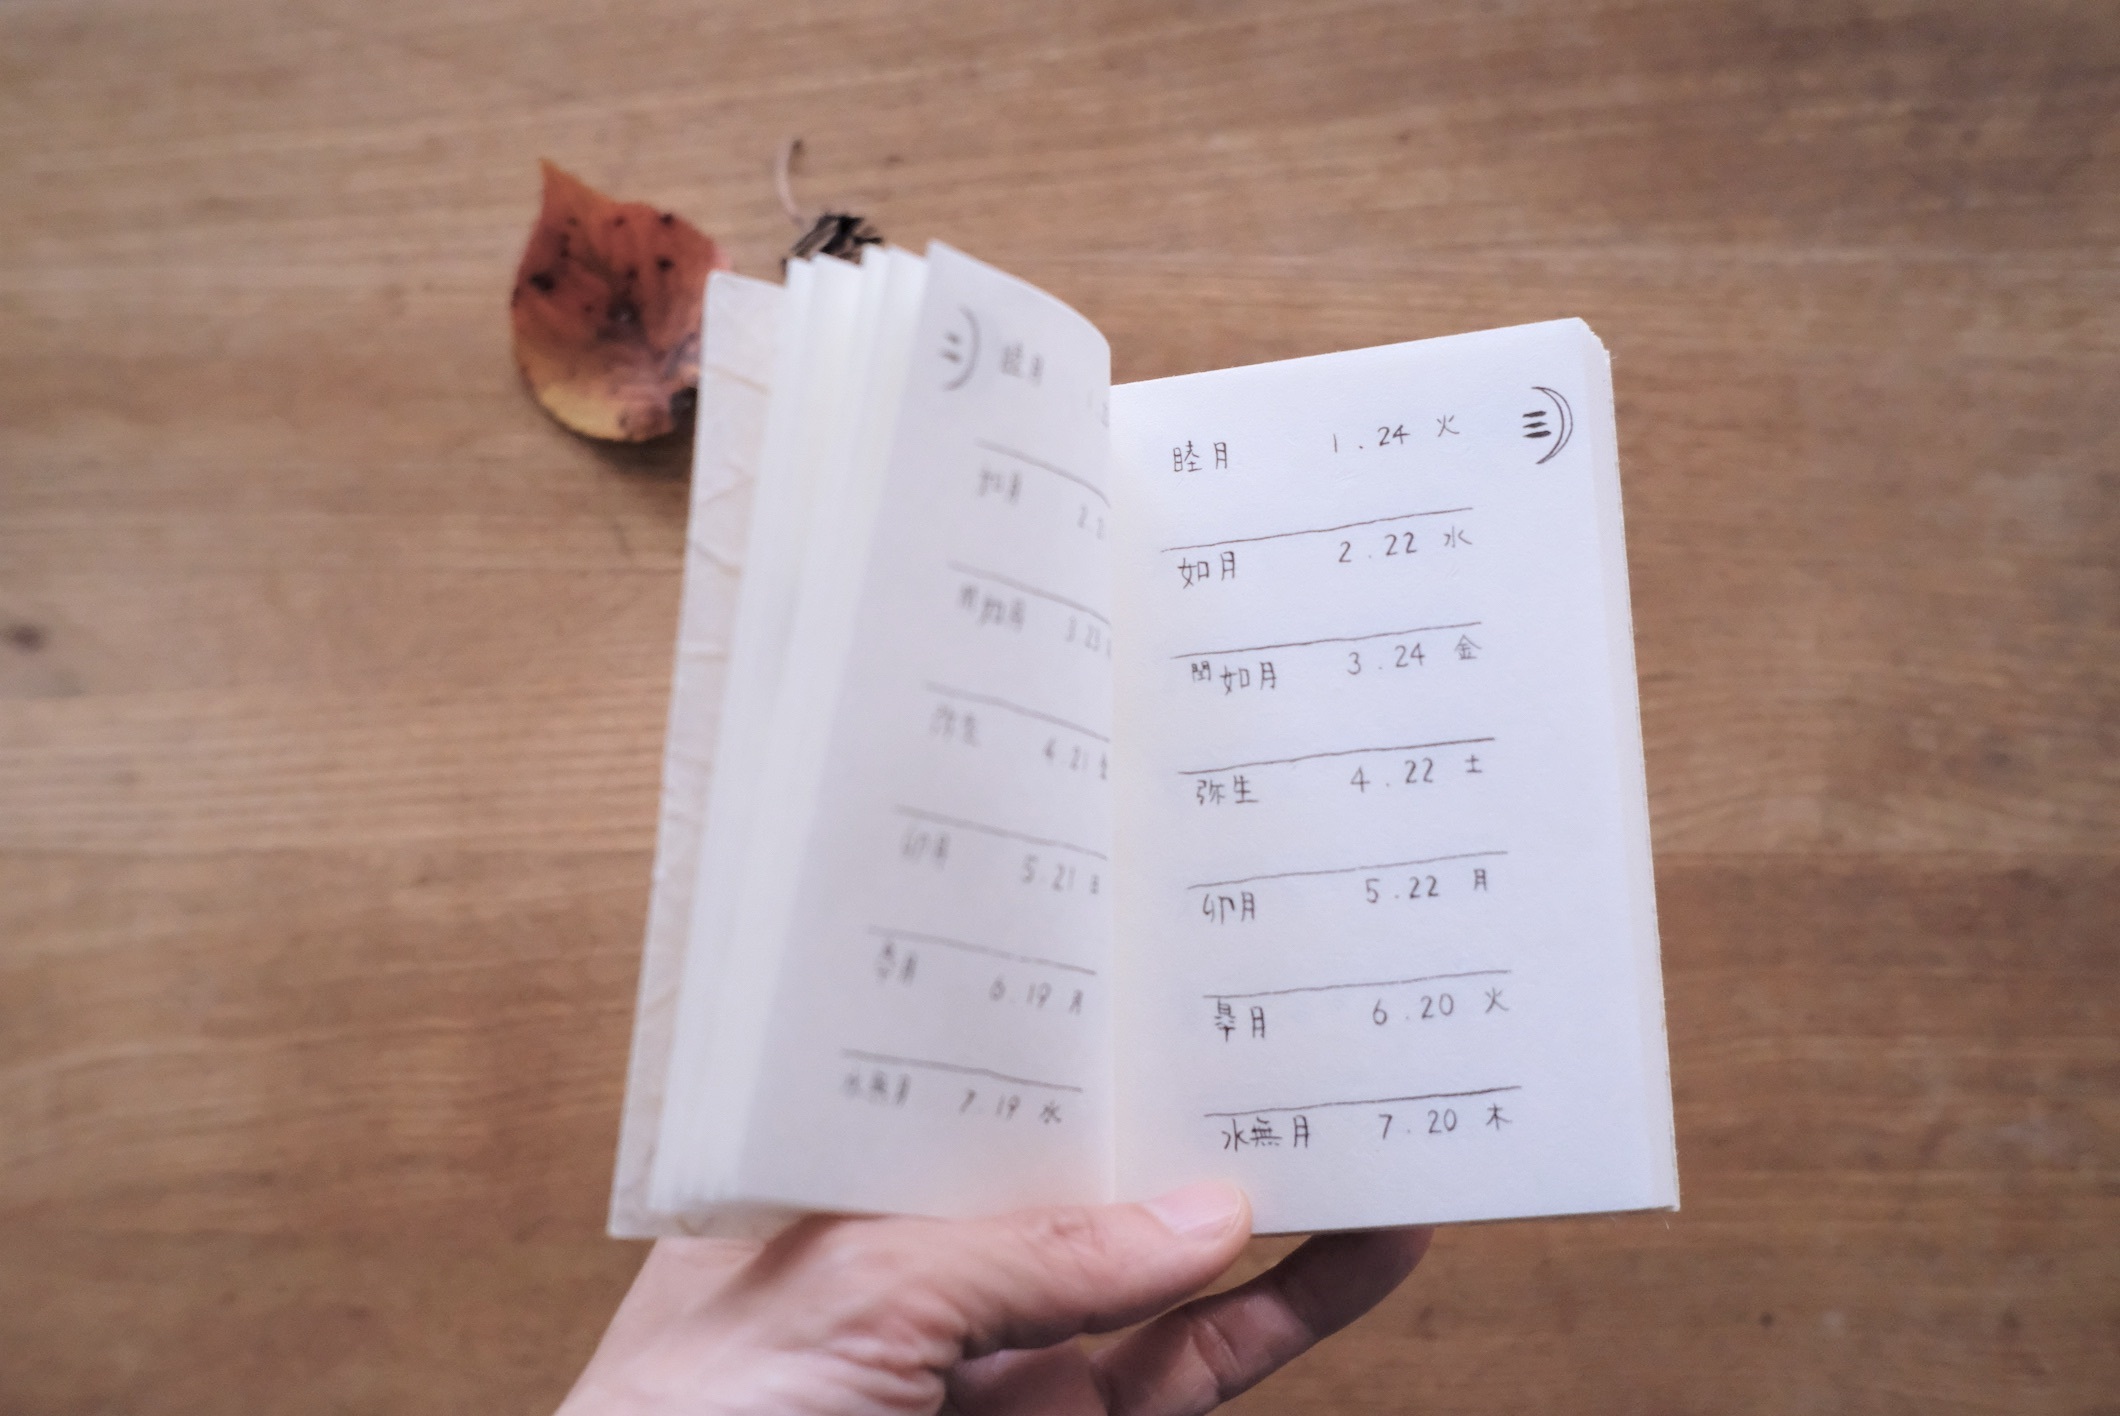 二
睦月
如月 2.2
閏如月 3.23
弥生 4.21 金
卯月 5.21 日
皐月 6.19 月
水無月 7.19 水
睦月 1.24 火 三
如月 2.22 水
閏如月 3.24 金
弥生 4.22 土
卯月 5.22 月
皐月 6.20 火
水無月 7.20 木